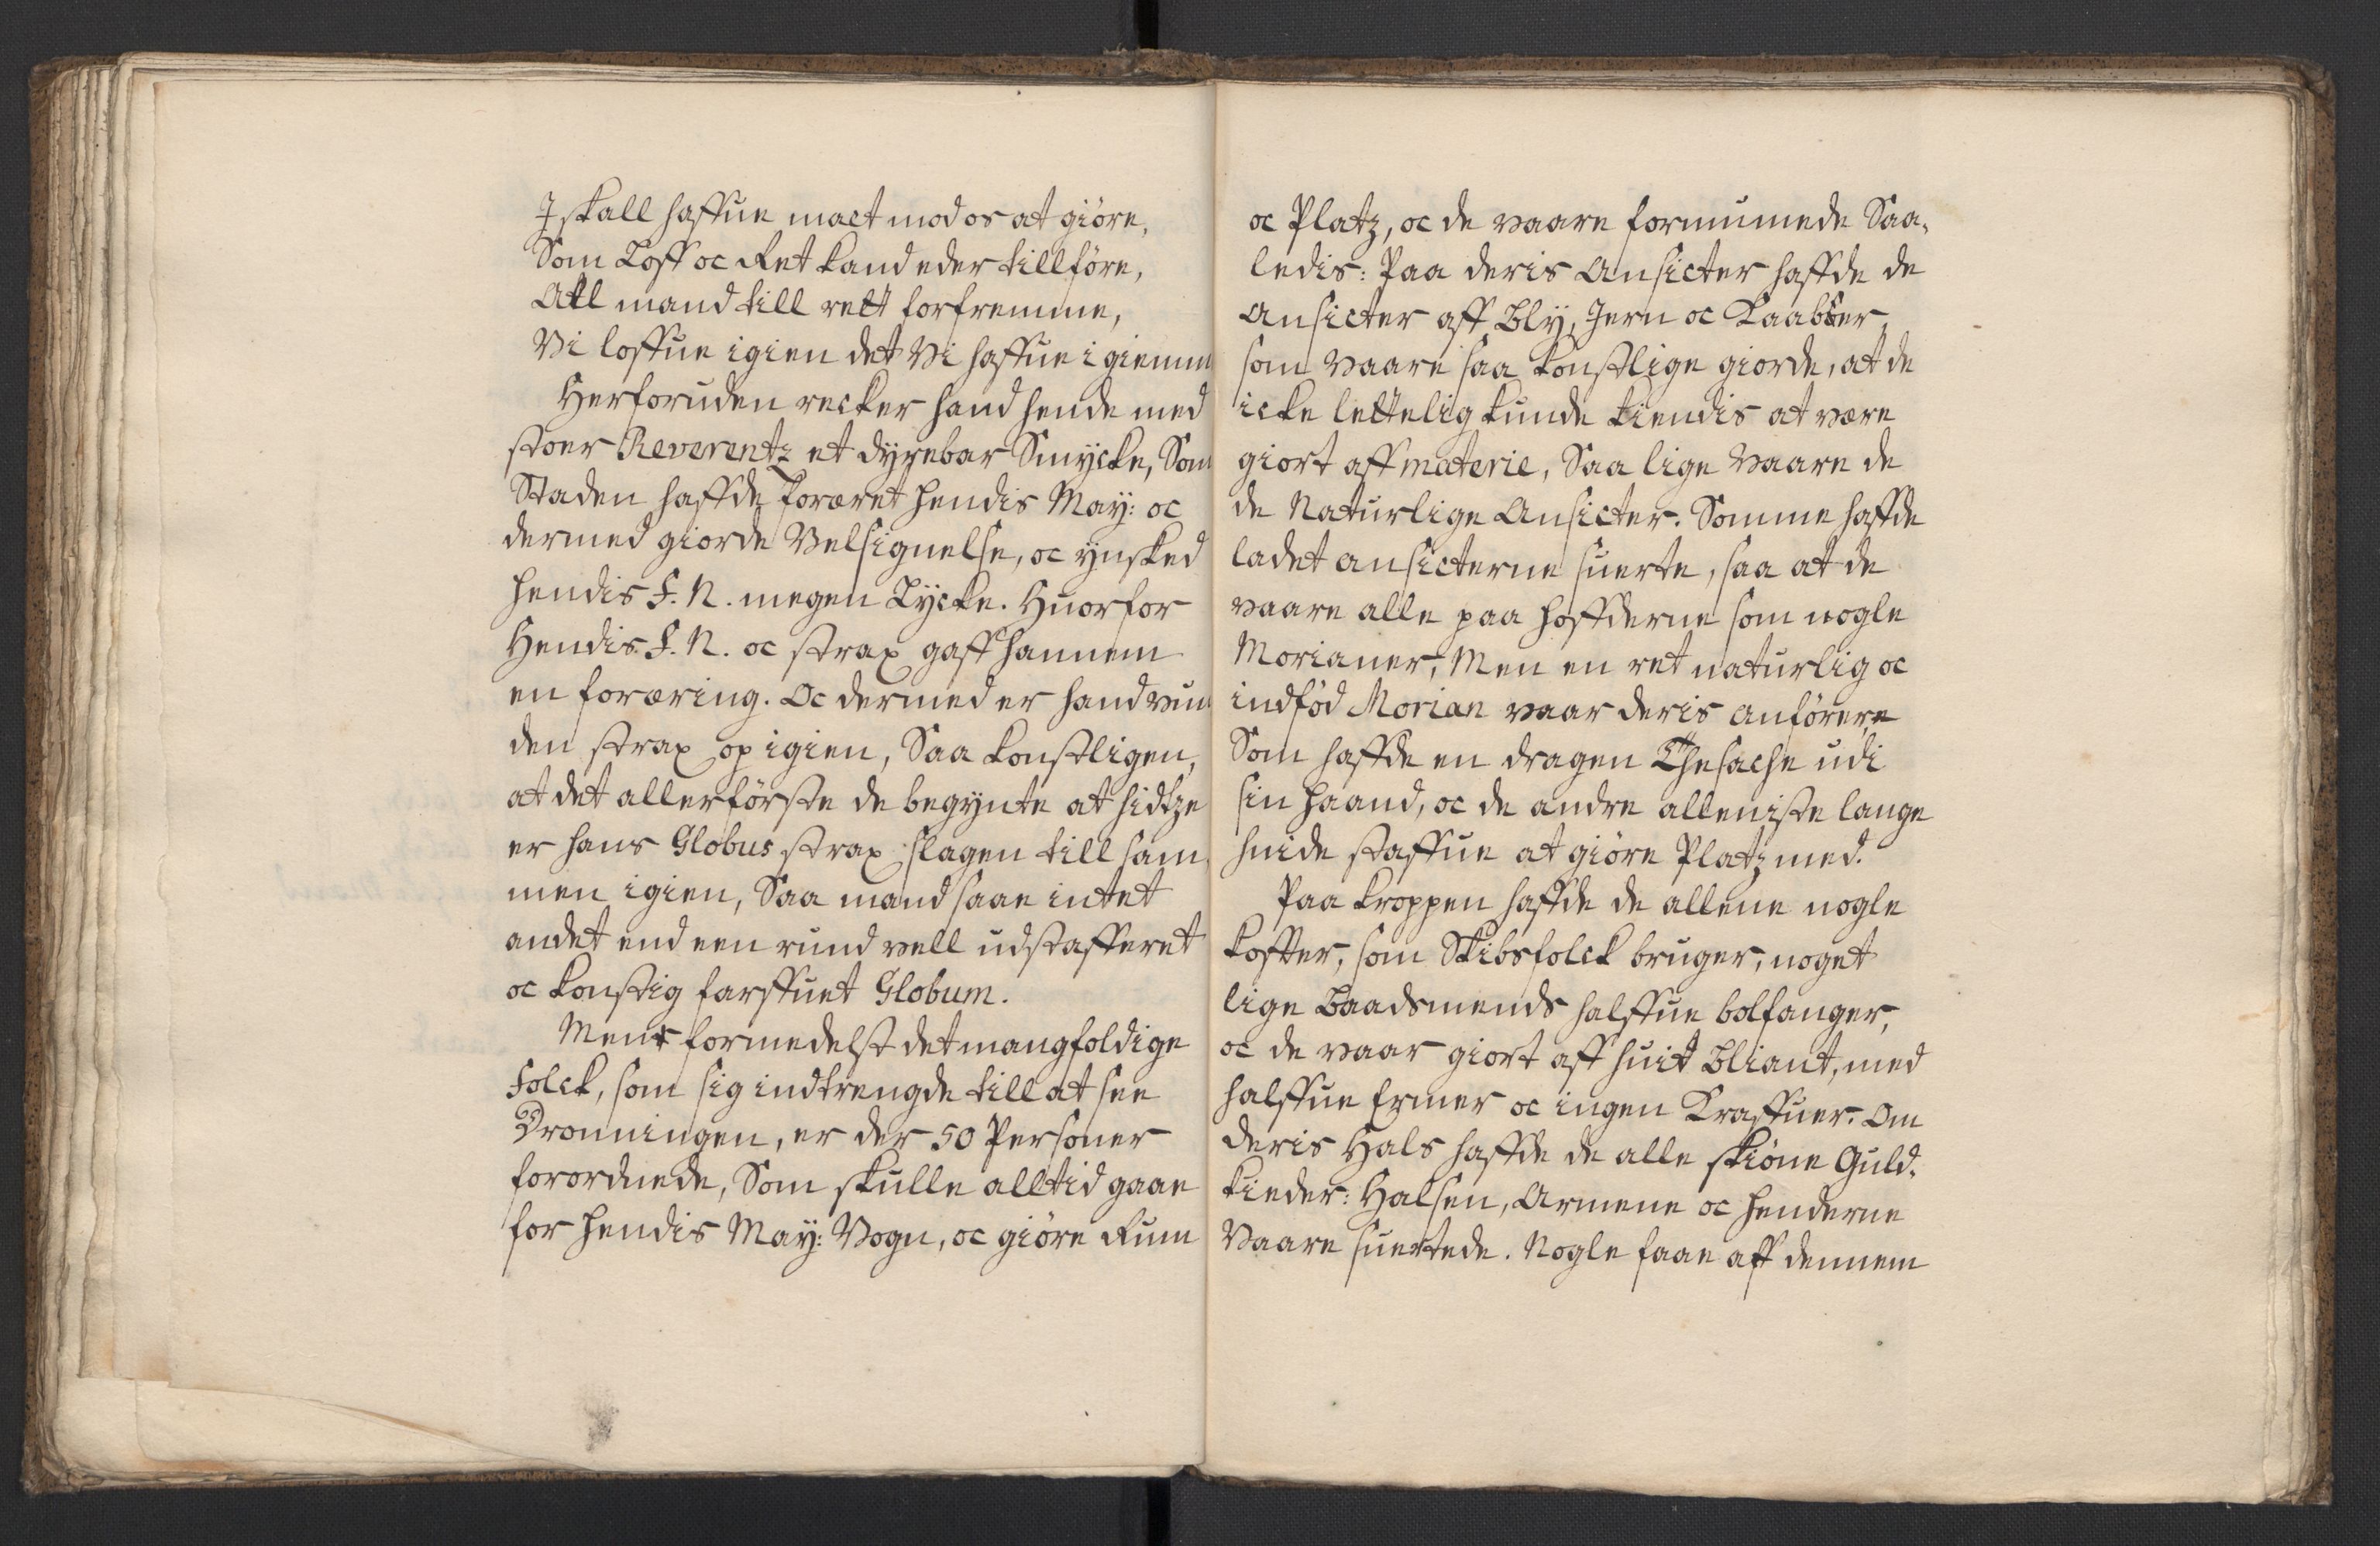 I skall haffue mact mod os at giöre,
Som Loff oc Ret kand eder tillföre,
All mand till rett forfremme,
Vi loffue igien det Vi haffue i giemm
Herforuden recker hand hende med
stoer Reverentz et dyrebar Smycke, Som
Staden haffde foræret hendis May: oc
dermed giorde Velsignelse, oc ynsked
hendis F. N. megen Lycke. Huorfor
Hendis F. N. oc strax gaff hannem
en foræring. Oc dermed er hand vun
den strax op igien, Saa konstligen,
at det allerförste de begynte at hidtze
er hans Globus strax slagen till sam
men igien, Saa mand saae intet
andet end een rund vell udstafferet
oc konstig farffuet Globum.
Mens formedelst det mangfoldige
Folck, som sig indtrengde till at see
Dronningen, er der 50 Personer
forordnede, Som skulle alltid gaae
for hendis May: Vogn, oc giöre Rum
oc Platz, oc de vaare formumede Saa,
ledis: Paa deris Ansicter haffde de
Ansicter aff Bly, Jern oc Kaabber,
som vaare saa konstlige giorde, at de
icke lettelig kunde kiendis at være
giort aff materie, Saa lige vaare de
de Naturlige Ansicter. Somme haffde
ladet ansicterne suerte, saa at de
vaare alle paa hoffderne som nogle
Morianer, Men en ret naturlig oc
indföd Morian vaar deris anförere
Som haffde en dragen Thesache udi
sin haand, oc de andre alleniste lange
huide staffue at giöre Platz med.
Paa kroppen haffde de allene nogle
koffter, som Skibsfolck bruger, noget
lige Baadsmends halffue bolfanger,
oc de vaar giort aff huit Bliant, med
halffue Ermer oc ingen Kraffuer. Om
deris Hals haffde de alle skiöne Guld,
kieder: Halsen, Armene oc henderne
Vaare suertede. Nogle faae aff dennem